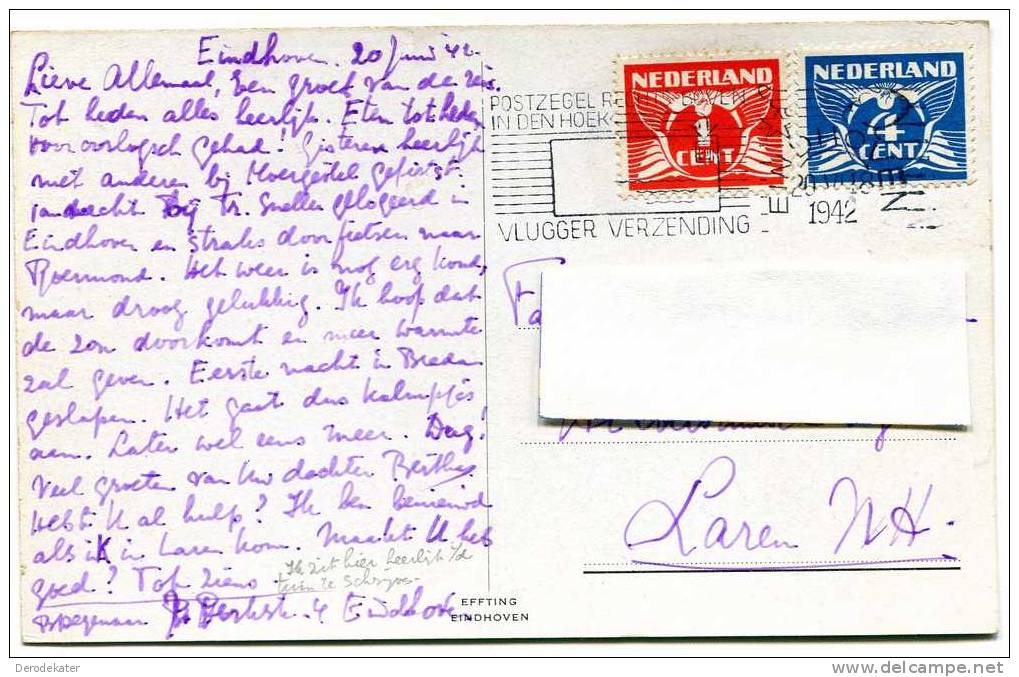 Eindhoven. 20 Juni 42.
Lieve Allemaal, Een groet van de reis.
Tot heden alles heerlijk. Eten tot heden
vooroorlogsch gehad! Gisteren heerlijk
met anderen bij Moergestel gefietst.
vannacht bij Tr. Sneller gelogeerd in
Eindhoven en straks doorfietsen naar
Roermond. Het weer is nog erg koud,
maar droog gelukkig. Ik hoop dat
de zon doorkomt en meer warmte
zal geven. Eerste nacht in Breda
geslapen. Het gaat dus kalmpjes
aan. Later wel eens meer. Dag!
Veel groeten van Uw dochter Bertha
Hebt U al hulp? Ik ben benieuwd
als ik in Laren kom. Maakt U het
goed? Tot ziens
Ik zit hier heerlijk i/d
tuin te schrijven
Eindhoven
NEDERLAND
1
CENT
NEDERLAND
4
CENT
POSTZEGEL RECHTS BOVEN
IN DEN HOEK
VLUGGER VERZENDING
1942
Fa
Laren NH.
EFFTING
EINDHOVEN
Derodekater
http://www.delcampe.net